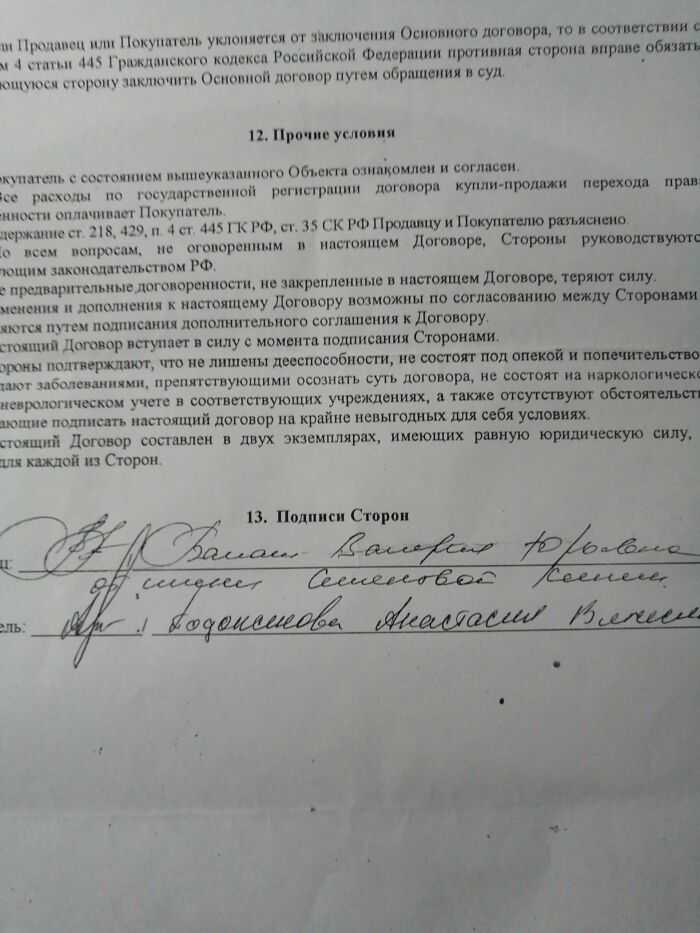 ли Продавец или Покупатель уклоняется от заключения Основного договора, то в соответствии с
м 4 статьи 445 Гражданского кодекса Российской Федерации противная сторона вправе обязать
ющуюся сторону заключить Основной договор путем обращения в суд.
12. Прочие условия
окупатель с состоянием вышеуказанного Объекта ознакомлен и согласен.
Все расходы по государственной регистрации договора купли-продажи перехода прав
енности оплачивает Покупатель.
держание ст. 218, 429, п. 4 ст. 445 ГК РФ, ст. 35 СК РФ Продавцу и Покупателю разъяснено.
о всем вопросам, не оговоренным в настоящем Договоре, Стороны руководствуются
ующим законодательством РФ.
е предварительные договоренности, не закрепленные в настоящем Договоре, теряют силу.
менения и дополнения к настоящему Договору возможны по согласованию между Сторонами
яются путем подписания дополнительного соглашения к Договору.
стоящий Договор вступает в силу с момента подписания Сторонами.
ороны подтверждают, что не лишены дееспособности, не состоят под опекой и попечительство
дают заболеваниями, препятствующими осознать суть договора, не состоят на наркологическо
неврологическом учете в соответствующих учреждениях, а также отсутствуют обстоятельст
ающие подписать настоящий договор на крайне невыгодных для себя условиях.
стоящий Договор составлен в двух экземплярах, имеющих равную юридическую силу,
для каждой из Сторон.
13. Подписи Сторон
ц: Валерия Юрьевна
Семеновой
ель: Анастасия